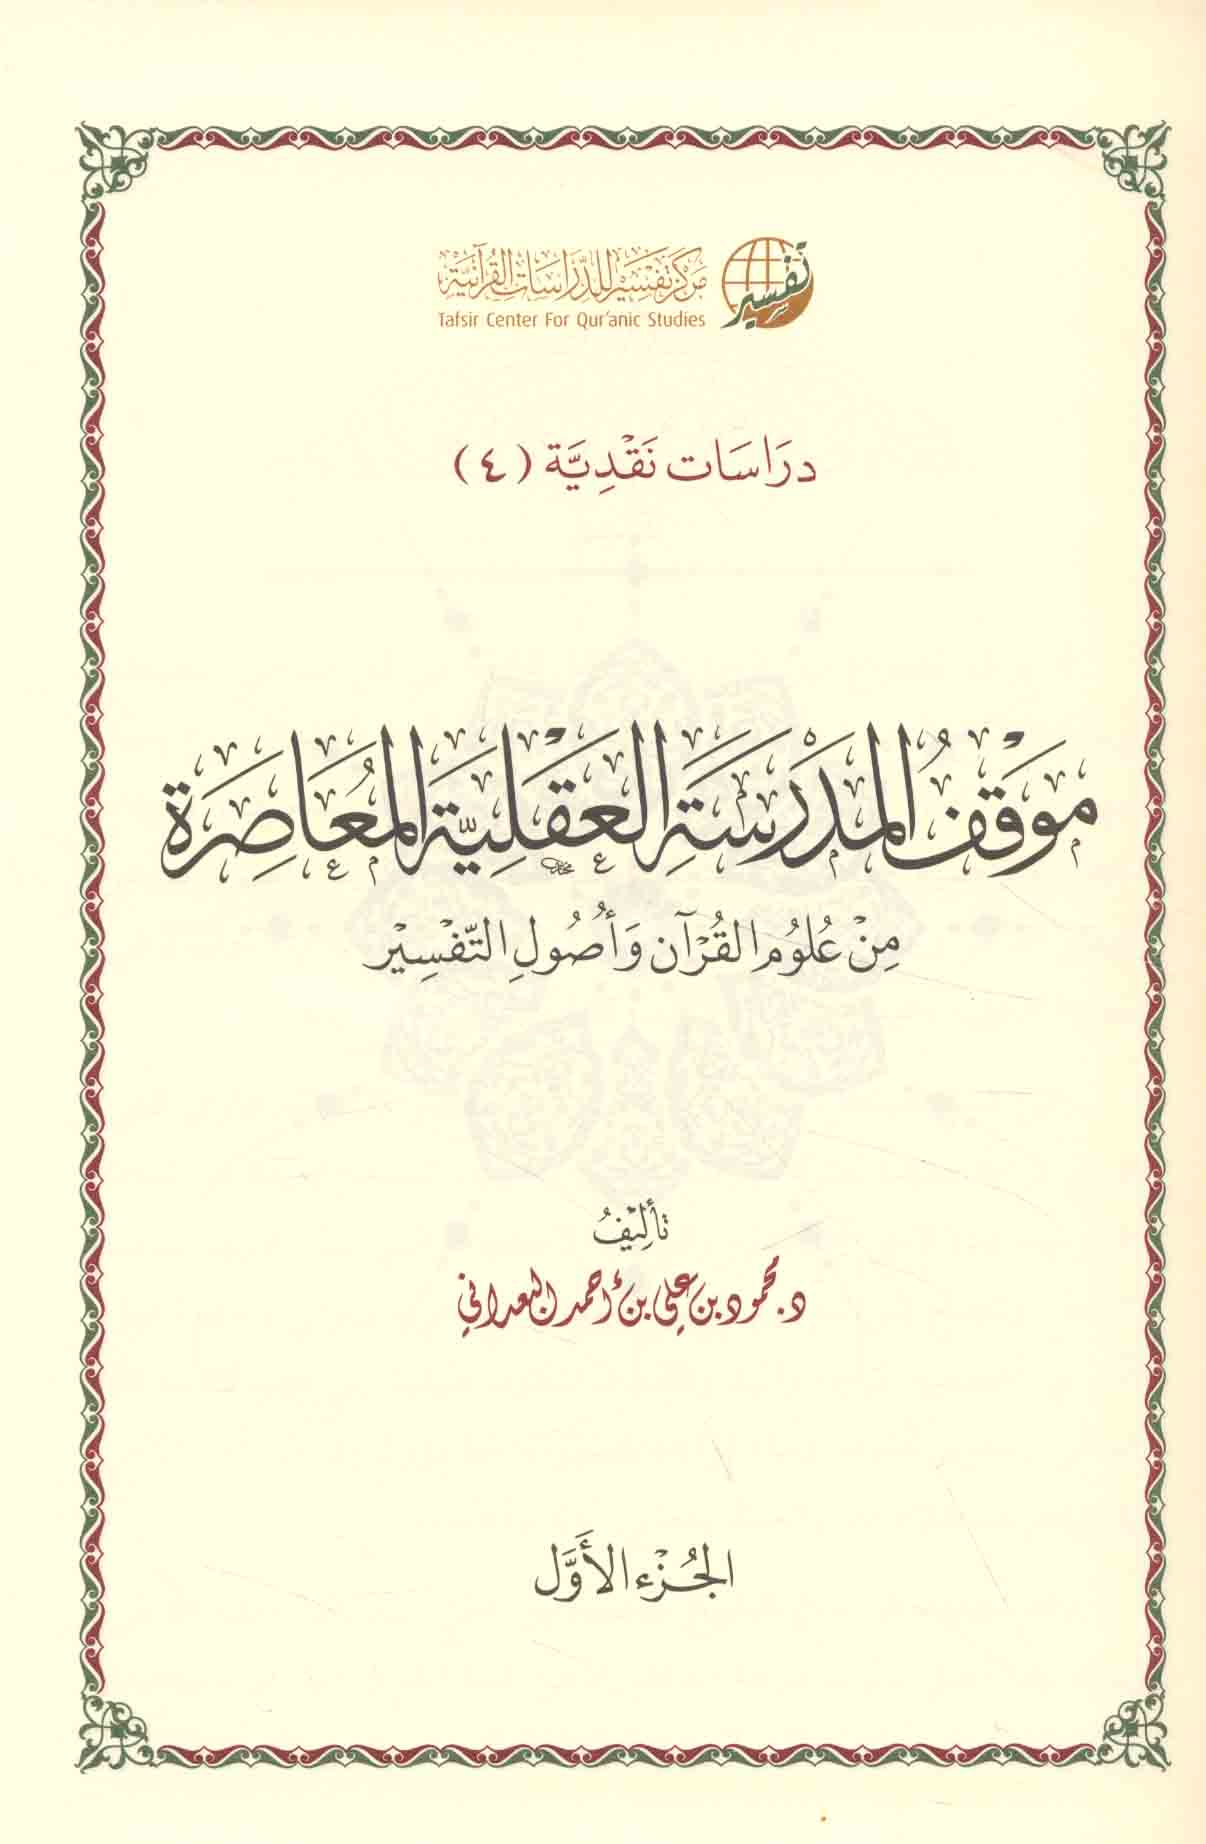 مركز تفسير للدراسات القرآنية
تفسير
Tafsir Center For Qur'anic Studies
دِرَاسَات نَقْدِيَّة (٤)
مَوْقِفُ المَدْرَسَةِ العَقْلِيَّةِ المُعَاصِرَة
مِنْ عُلُومِ القُرْآن وَأُصُولِ التَّفْسِيْر
تأليفُ
د. محمود بن علي بن أحمد البعداني
الجُزْء الأَوَّل